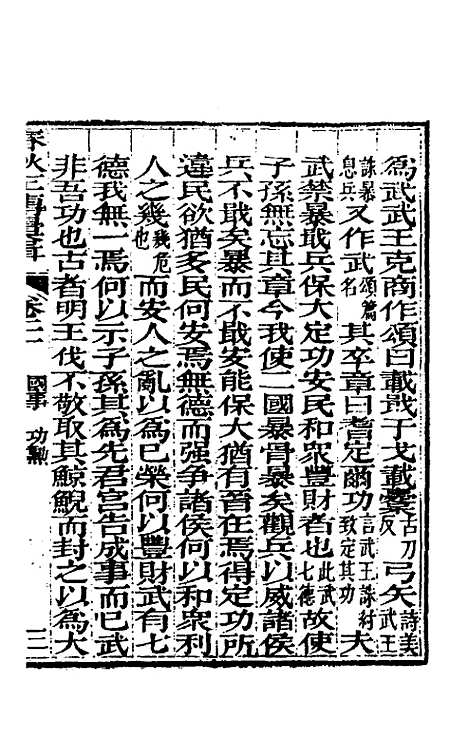 為武武王克商作頌曰載戢干戈載櫜古刀反弓矢詩美武王
誅暴息兵又作武頌篇名其卒章曰耆定爾功言武王誅紂致定其功夫
武禁暴戢兵保大定功安民和眾豐財者也此武七德故使
子孫無忘其章今我使二國暴骨暴矣觀兵以威諸侯
兵不戢矣暴而不戢安能保大猶有晉在焉得定功所
違民欲猶多民何安焉無德而強争諸侯何以和眾利
人之幾幾危也而安人之亂以為己榮何以豐財武有七
德我無一焉何以示子孫其為先君宮告成事而已武
非吾功也古者明王伐不敬取其鯨鯢而封之以為大
卷二
國事
功勲
三